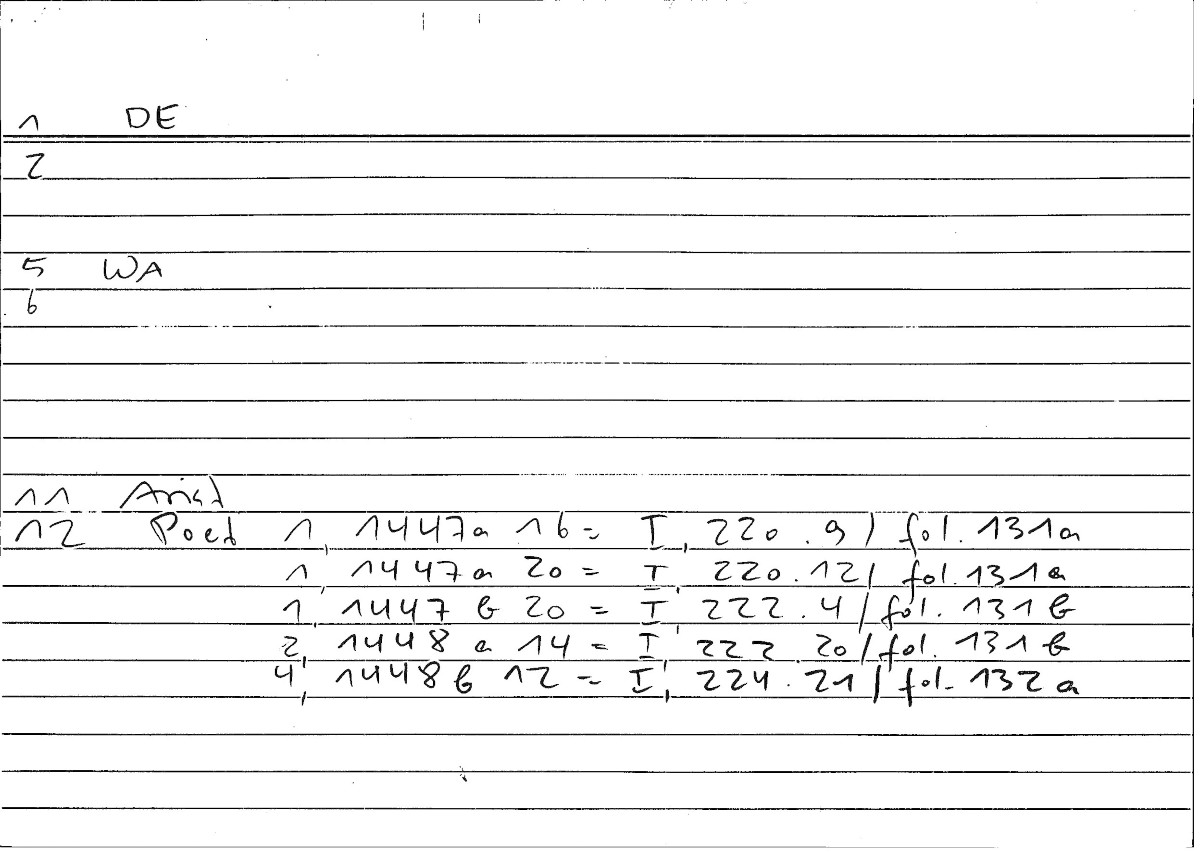 1 DE
2
5 WA
6
11 Arist
12 Poet 1, 1447a 16 = I, 220.9 / fol. 131a
1, 1447a 20 = I, 220.12 / fol. 131a
1, 1447 b 20 = I, 222.4 / fol. 131 b
2, 1448 a 14 = I, 222.20 / fol. 131 b
4, 1448 b 12 = I, 224.21 / fol. 132 a